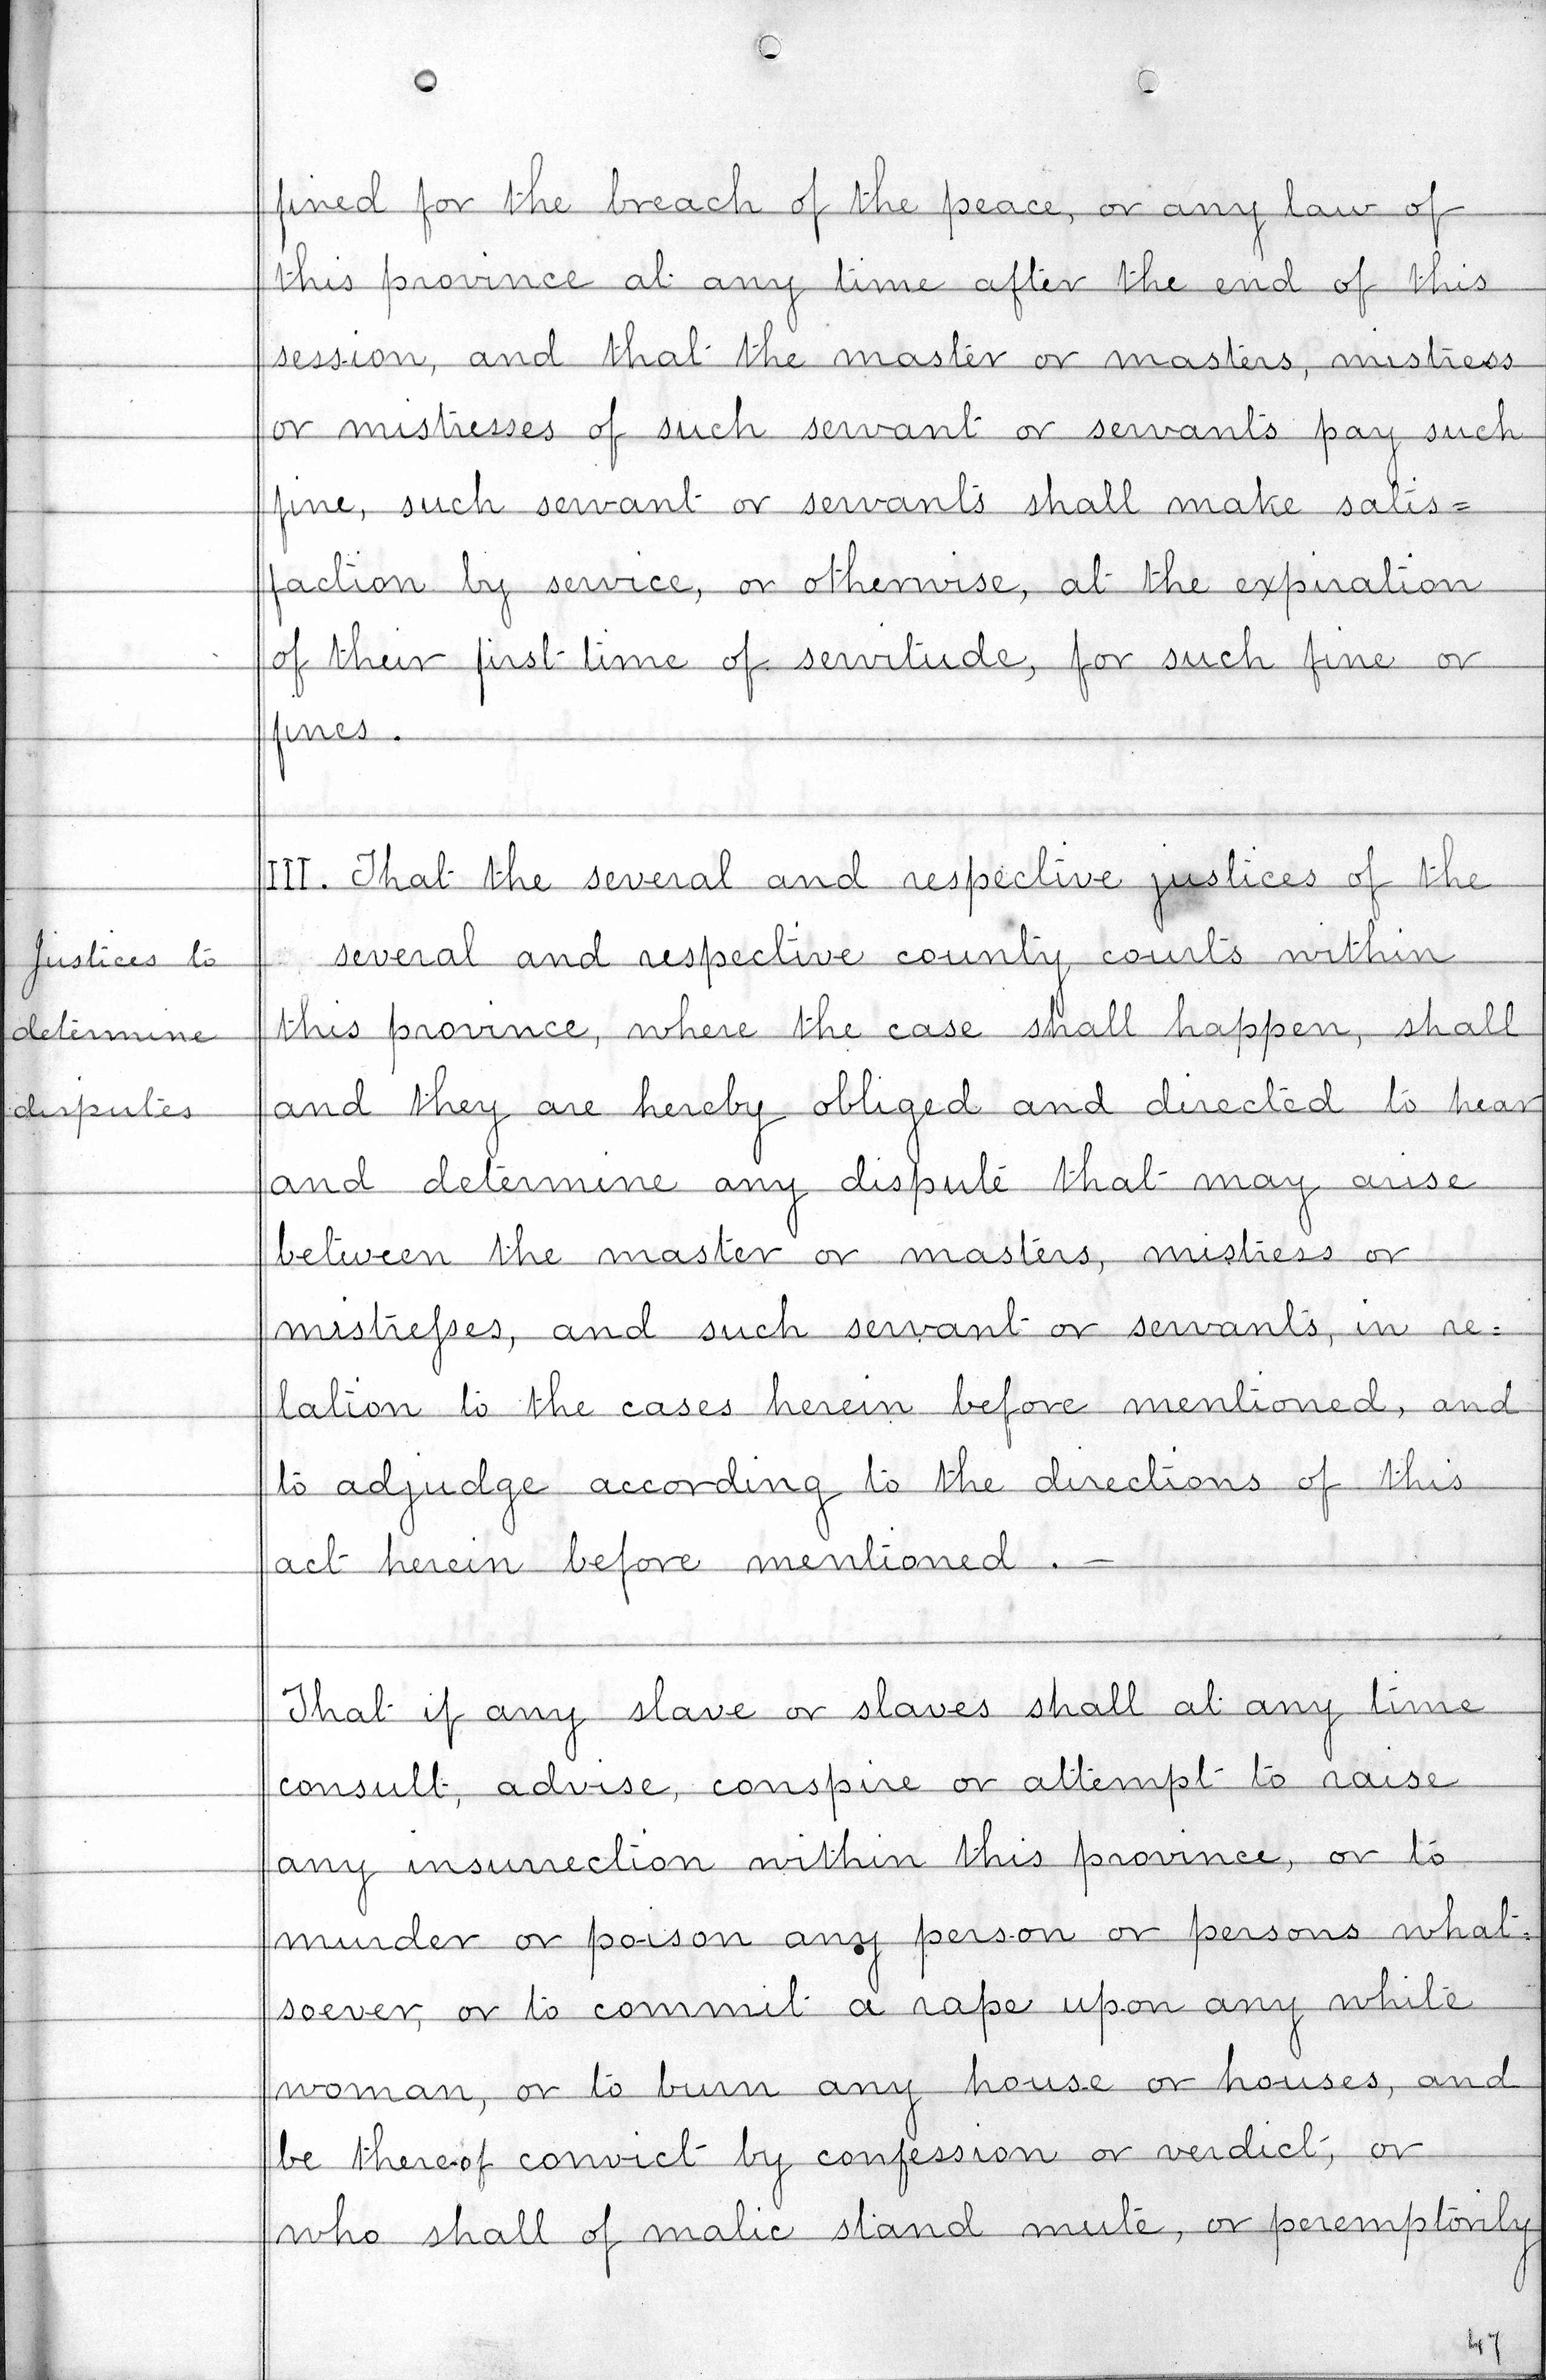 fined for the breach of the peace, or any law of
this province at any time after the end of this
session, and that the master or masters, mistress
or mistresses of such servant or servants pay such
fine, such servant or servants shall make satis=
faction by service, or otherwise, at the expiration
of their first time of servitude, for such fine or
fines.
III. That the several and respective justices of the
Justices to
several and respective county courts within
determine
this province, where the case shall happen, shall
disputes
and they are hereby obliged and directed to hear
and determine any dispute that may arise
between the master or masters, mistress or
mistreſses, and such servant or servants, in re=
lation to the cases herein before mentioned, and
to adjudge according to the directions of this
act herein before mentioned. —
That if any slave or slaves shall at any time
consult, advise, conspire or attempt to raise
any insurrection within this province, or to
murder or poison any person or persons what=
soever, or to commit a rape upon any white
woman, or to burn any house or houses, and
be thereof convict by confession or verdict, or
who shall of malic stand mute, or peremptorily
47